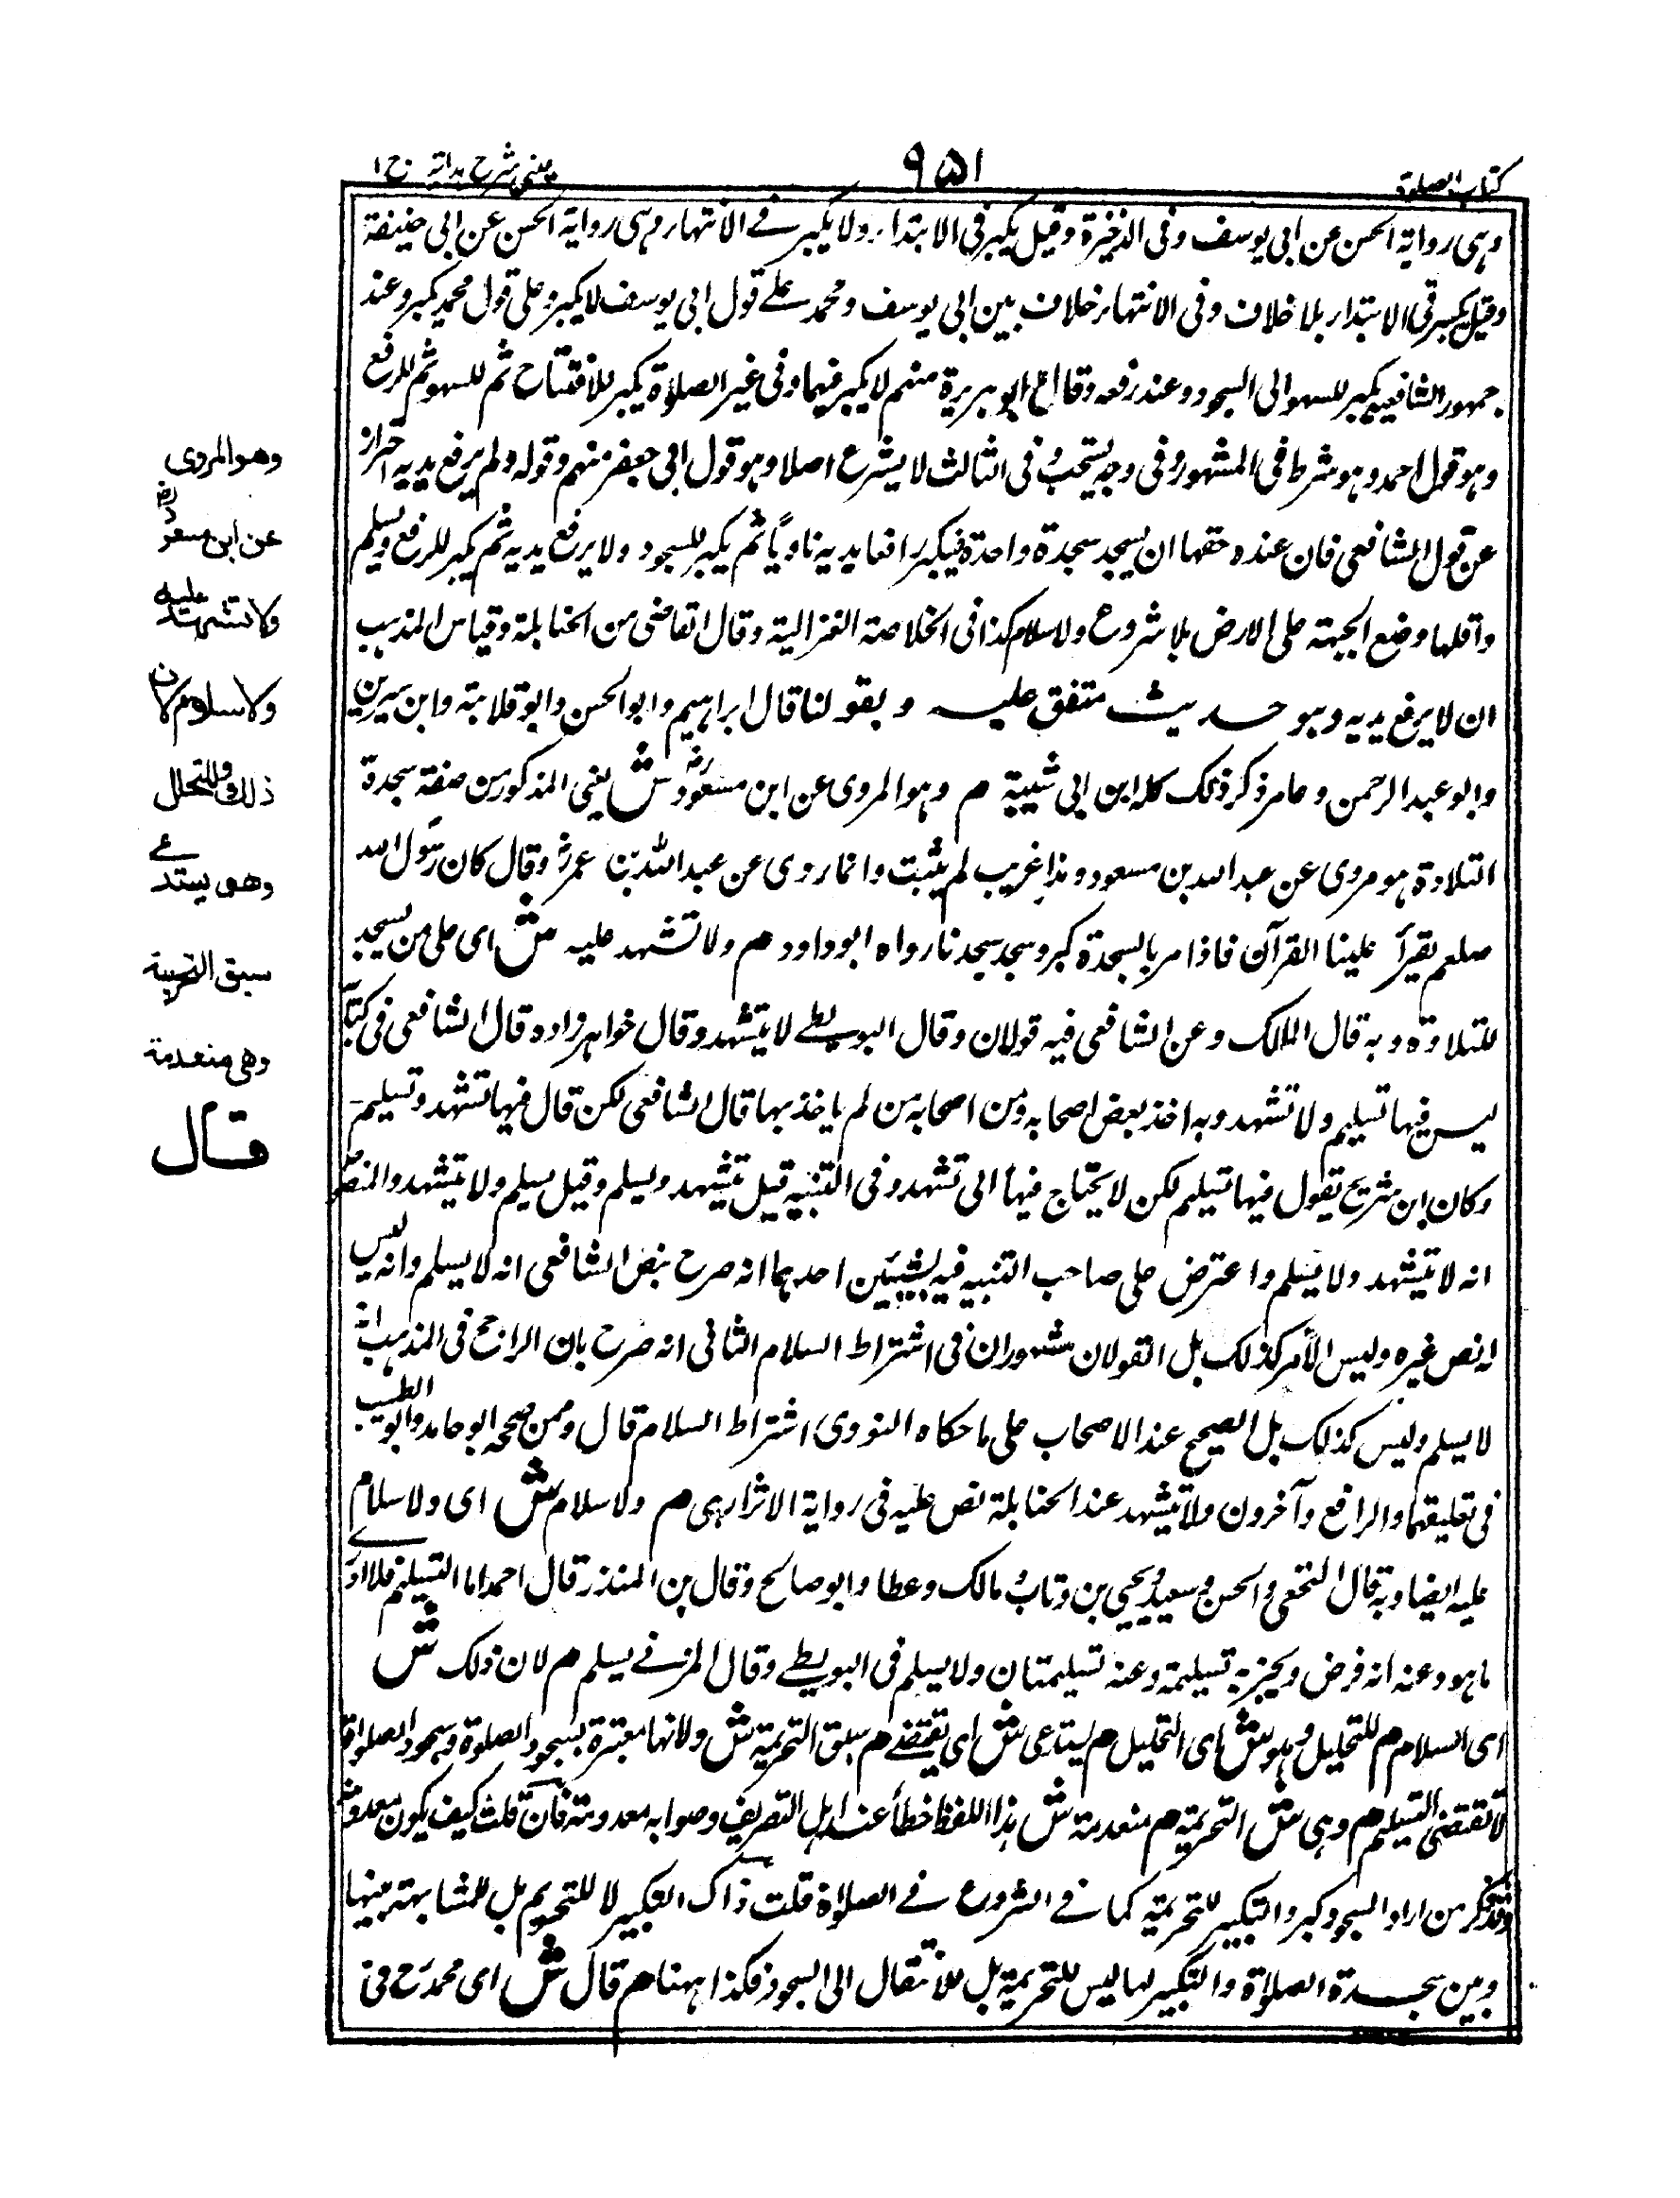 كتاب الصلوة
٩٥١
عينى شرح هداية ج ١
وهى رواية الحسن عن ابى يوسف وفى الذخيرة وقيل يكبر فى الابتداء ولا يكبر فى الانتهاء وهى رواية الحسن عن ابى حنيفة
وقيل يكبر فى الابتداء بلا خلاف وفى الانتهاء خلاف بين ابى يوسف ومحمد على قول ابى يوسف لا يكبر وعلى قول محمد يكبر وعند
جمهور الشافعية يكبر للسهو الى السجود وعند رفعه وقال ابو هريرة منهم لا يكبر فيهما وفى غير الصلاة يكبر للافتتاح ثم للسهو ثم للرفع
وهو قول احمد وهو شرط فى المشهور وفى وجه يستحب وفى الثالث لا يشرع اصلا وهو قول ابى جعفر منهم وقوله ولم يرفع يديه احتراز
عن قول الشافعى فان عنده حقها ان يسجد سجدة واحدة فيكبر رافعا يديه ناويًا ثم يكبر للسجود ولا يرفع يديه ثم يكبر للرفع ويسلم
واقلها وضع الجبهة على الارض بلا شروع ولا سلام كذا فى الخلاصة الغزالية وقال القاضى من الحنابلة وقياس المذهب
ان لا يرفع يديه وهو حديث متفق عليه وبقولنا قال ابراهيم وابو الحسن وابو قلابة وابن سيرين
وابو عبد الرحمن وعامر ذكر ذلك كله ابن ابى شيبة م وهو المروى عن ابن مسعود رض ش يعنى المذكور من صفة سجدة
التلاوة هو مروى عن عبد الله بن مسعود وهذا غريب لم يثبت وانما روى عن عبد الله بن عمر رض وقال كان رسول الله
صلعم يقرأ علينا القرآن فاذا مر بالسجدة كبر وسجد سجدنا رواه ابو داود م ولا تشهد عليه ش اى على من يسجد
للتلاوة وبه قال المالك وعن الشافعى فيه قولان وقال البويطى لا يتشهد وقال خواهر زاده قال الشافعى فى كتاب
ليس فيها تسليم ولا تشهد وبه اخذ بعض اصحابه ومن اصحابه من لم ياخذ بها قال الشافعى لكن قال فيها تشهد وتسليم
وكان ابن شريح يقول فيها تسليم لكن لا يحتاج فيها الى تشهد وفى التنبيه قيل يتشهد ويسلم وقيل يسلم ولا يتشهد والمنصوص
انه لا يتشهد ولا يسلم واعترض على صاحب التنبيه فيه بشيئين احدهما انه صرح بنص الشافعى انه لا يسلم وانه ليس
له نص غيره وليس الأمر كذلك بل القولان مشهوران فى اشتراط السلام الثانى انه صرح بان الراجح فى المذهب انه
لا يسلم وليس كذلك بل الصحيح عند الاصحاب على ما حكاه النووى اشتراط السلام قال وممن صححه ابو حامد وابو الطيب
فى تعليقهما والرافع وآخرون ولا يتشهد عند الحنابلة نص عليه فى رواية الاثرار هى م ولا سلام ش اى ولا سلام
عليه ايضا وبه قال النخعى والحسن وسعيد ويحيى بن وثاب ومالك وعطا وابو صالح وقال بن المنذر قال احمد اما التسليم فلا ادرى
ما هو وعنه انه فرض ويجزيه تسليمة وعنه تسليمتان ولا يسلم فى البويطى وقال المزنى يسلم م لان ذلك ش
اى السلام م للتحليل وهو ش اى التحليل م يستدعى ش اى يقتضى م سبق التحريمة ش ولانها معتبرة بسجود الصلوة وسجود الصلواة
لا تقتضى التسليم م وهى ش التحريمة م منعدمة ش هذا اللفظ خطأ عند اهل التصريف وصوابه معدومة فان قلت كيف يكون معدومة
وقد ذكر من اراد السجود كبر والتكبير للتحريمة كما فى الشروع فى الصلاة قلت ذاك التكبير لا للتحريم بل للمشابهة بينها
وبين سجدة الصلاة والتكبير لها ليس للتحريمة بل للانتقال الى السجود فكذا ههنا م قال ش اى محمد رح فى
وهو المروى
عن ابن مسعود رض
ولا تشهد عليه
ولا سلام لان
ذلك للتحلل
وهو يستدعى
سبق التحريمة
وهى منعدمة
قال